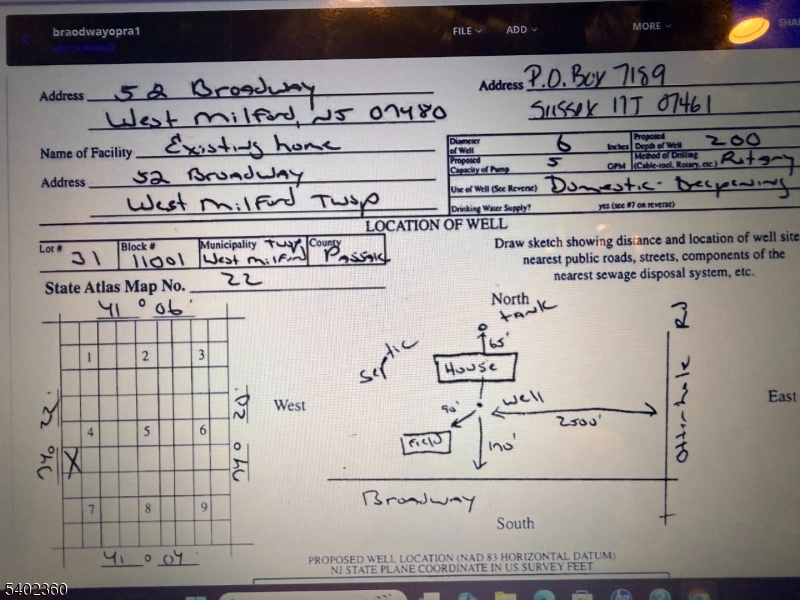 braodwayopra1
FILE ADD MORE SHA
Address 52 Broadway
West Milford, NJ 07480
Address P.O. Box 7189
Sussex NJ 07461
Name of Facility Existing home
Address 52 Broadway
West Milford Twsp
Diameter of Well 6 Inches
Proposed Depth of Well 200
Proposed Capacity of Pump 5 GPM
Method of Drilling (Cable-tool, Rotary, etc.) Rotary
Use of Well (See Reverse) Domestic - Deepening
Drinking Water Supply? yes (see #7 on reverse)
LOCATION OF WELL
Lot # 31
Block # 11001
Municipality Twp West Milford
County Passaic
State Atlas Map No. 22
Draw sketch showing distance and location of well site
nearest public roads, streets, components of the
nearest sewage disposal system, etc.
41 ° 06'
1 2 3
4 5 6
X
7 8 9
74 ° 22'
74 ° 20'
41 ° 04'
North
tank
septic
65'
House
West
well
90'
2500'
Field
170'
East
Otterhole Rd
Broadway
South
PROPOSED WELL LOCATION (NAD 83 HORIZONTAL DATUM)
NJ STATE PLANE COORDINATE IN US SURVEY FEET
5402360